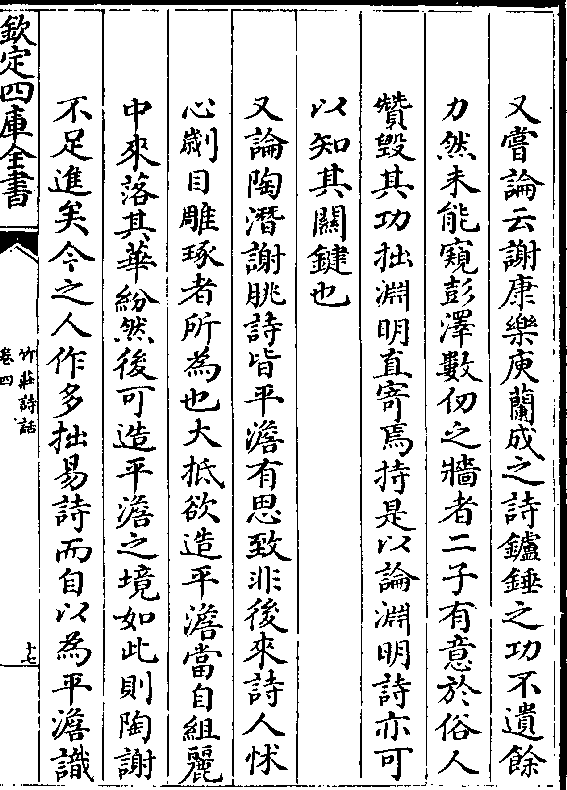 又嘗論云謝康樂庾蘭成之詩鑪錘之功不遺餘
力然未能窺彭澤數仞之牆者二子有意於俗人
贊毀其功拙淵明直寄焉持是以論淵明詩亦可
以知其關鍵也
又論陶潛謝朓詩皆平澹有思致非後來詩人怵
心劌目雕琢者所為也大抵欲造平澹當自組麗
中來落其華紛然後可造平澹之境如此則陶謝
不足進矣今之人作多拙易詩而自以為平澹識
欽定四庫全書
竹莊詩話
卷四
十七